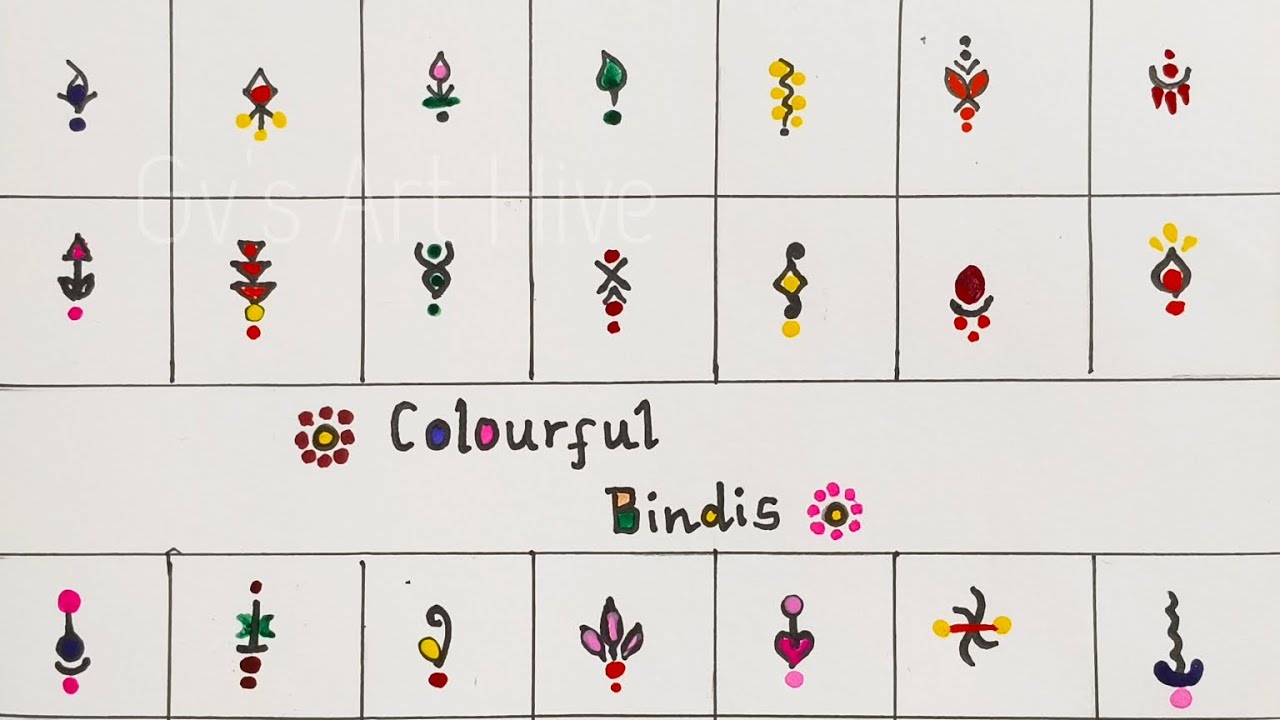 Gv's Art Hive
Colourful
Bindis